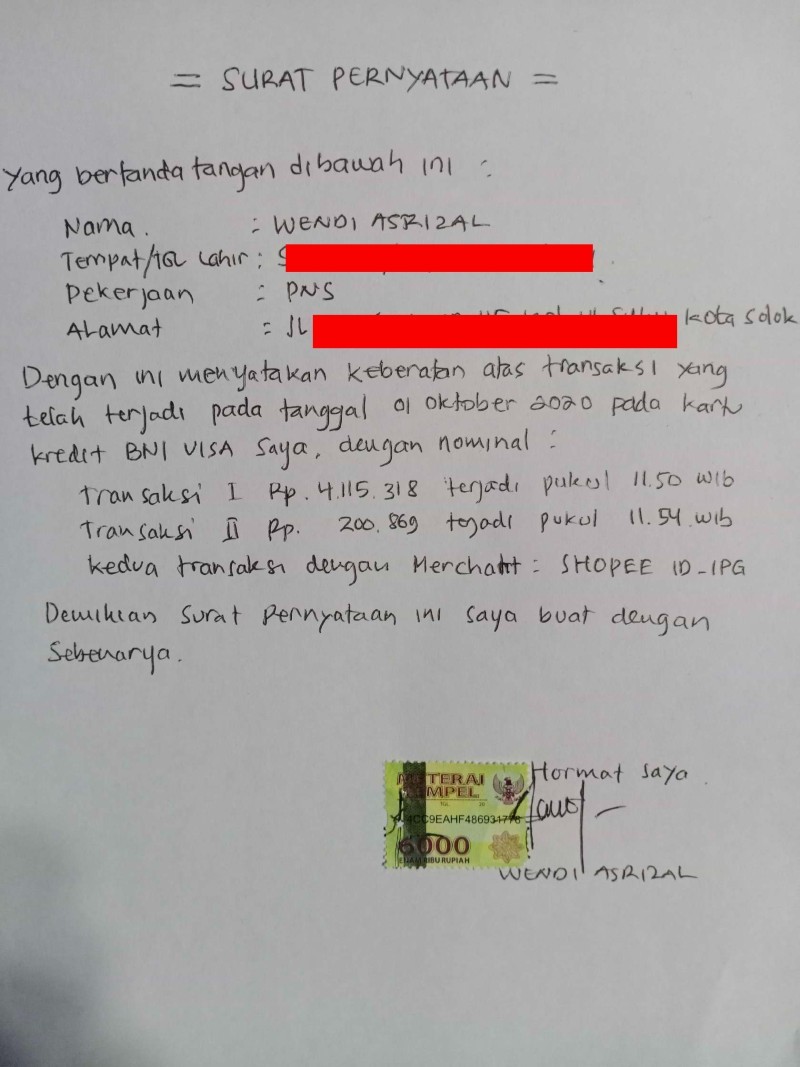 = SURAT PERNYATAAN =
Yang bertanda tangan dibawah ini :
Nama. : WENDI ASRIZAL
Tempat/TGL Lahir : S
Pekerjaan : PNS
ALamat = JL kota Solok
Dengan ini menyatakan keberatan atas transaksi yang
telah terjadi pada tanggal 01 oktober 2020 pada kartu
kredit BNI VISA Saya, dengan nominal :
transaksi I Rp. 4.115.318 terjadi pukul 11.50 WIB
Transaksi II Rp. 200.869 terjadi pukul 11.54 WIB
kedua transaksi dengan Merchant : SHOPEE ID_IPG
Demikian Surat Pernyataan ini saya buat dengan
Sebenarya.
Hormat saya
METERAI
TEMPEL
6000
ENAM RIBU RUPIAH
WENDI ASRIZAL